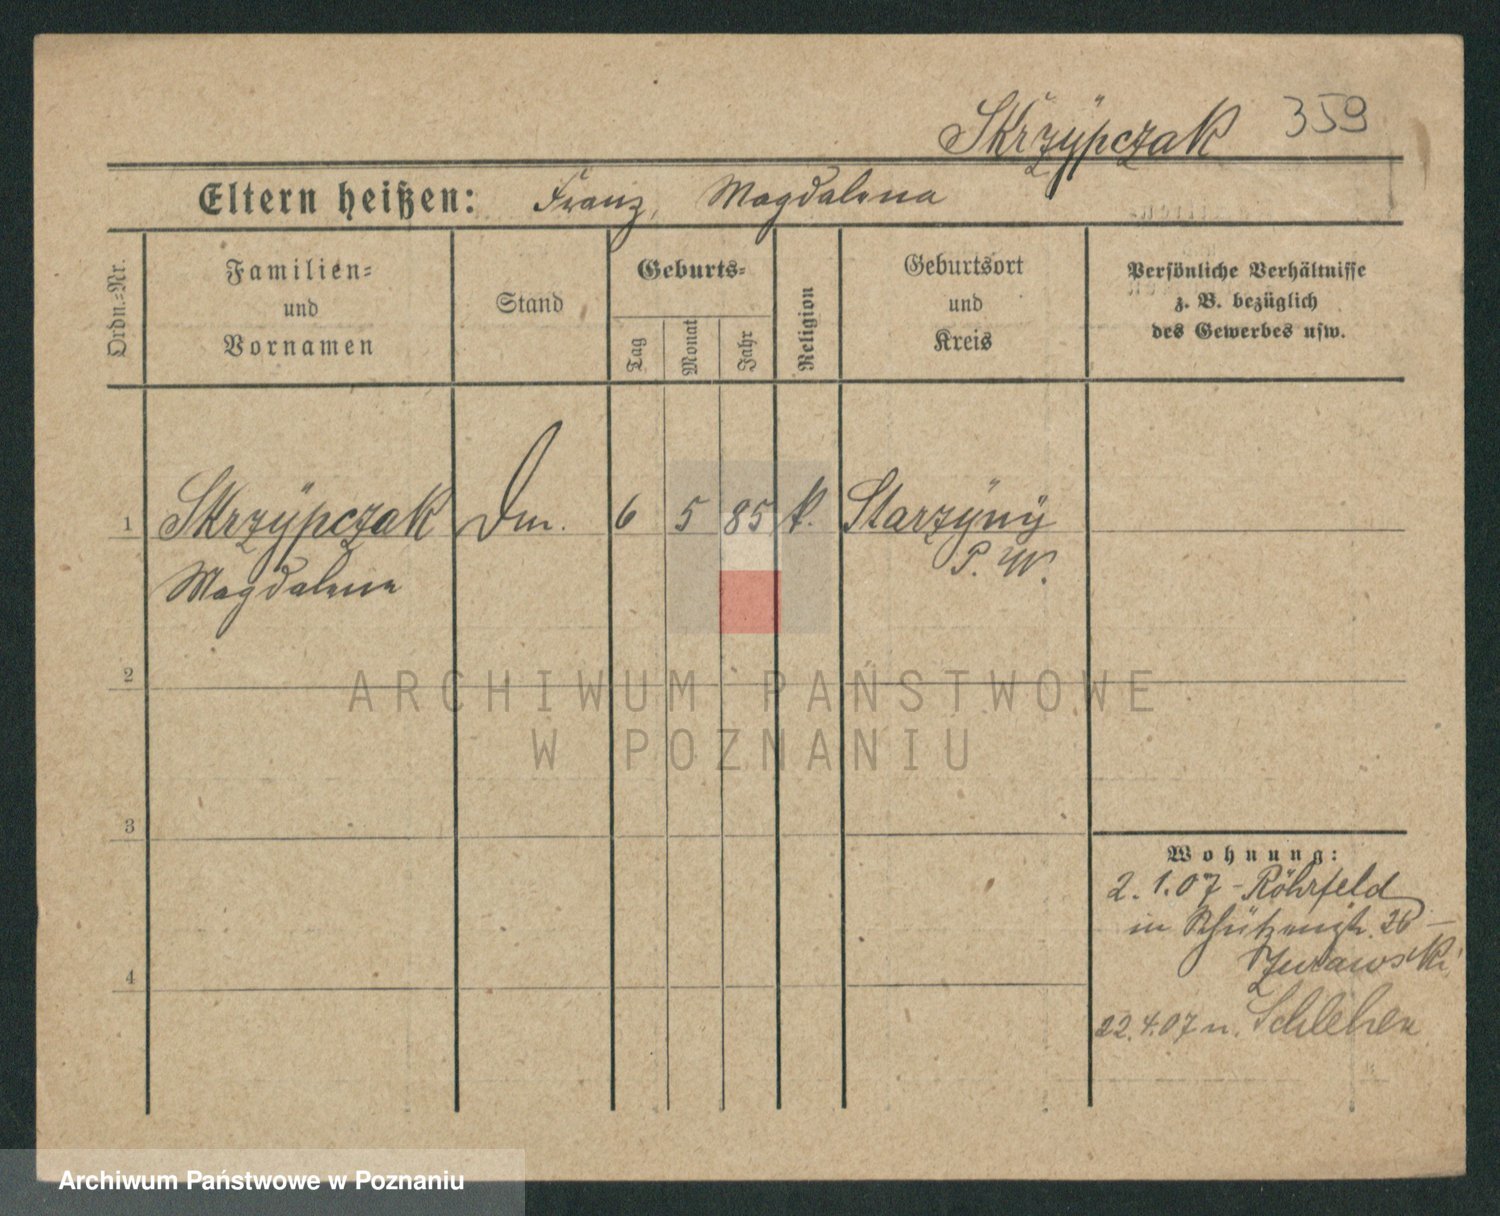 Skrzypczak 359
Eltern heißen: Franz, Magdalena
Ordn.=Nr.
Familien=
und
Vornamen
Stand
Geburts=
Tag
Monat
Jahr
Religion
Geburtsort
und
Kreis
Persönliche Verhältnisse
z. B. bezüglich
des Gewerbes usw.
1 Skrzÿpczak Dm. 6 5 85 k. Starzÿnÿ
Magdalena P. W.
2
3
4
Wohnung:
2.1.07 - Röhrfeld
in Schützenstr. 26 -
Zurawski
22.4.07 n. Schlehen
ARCHIWUM PAŃSTWOWE
W POZNANIU
Archiwum Państwowe w Poznaniu